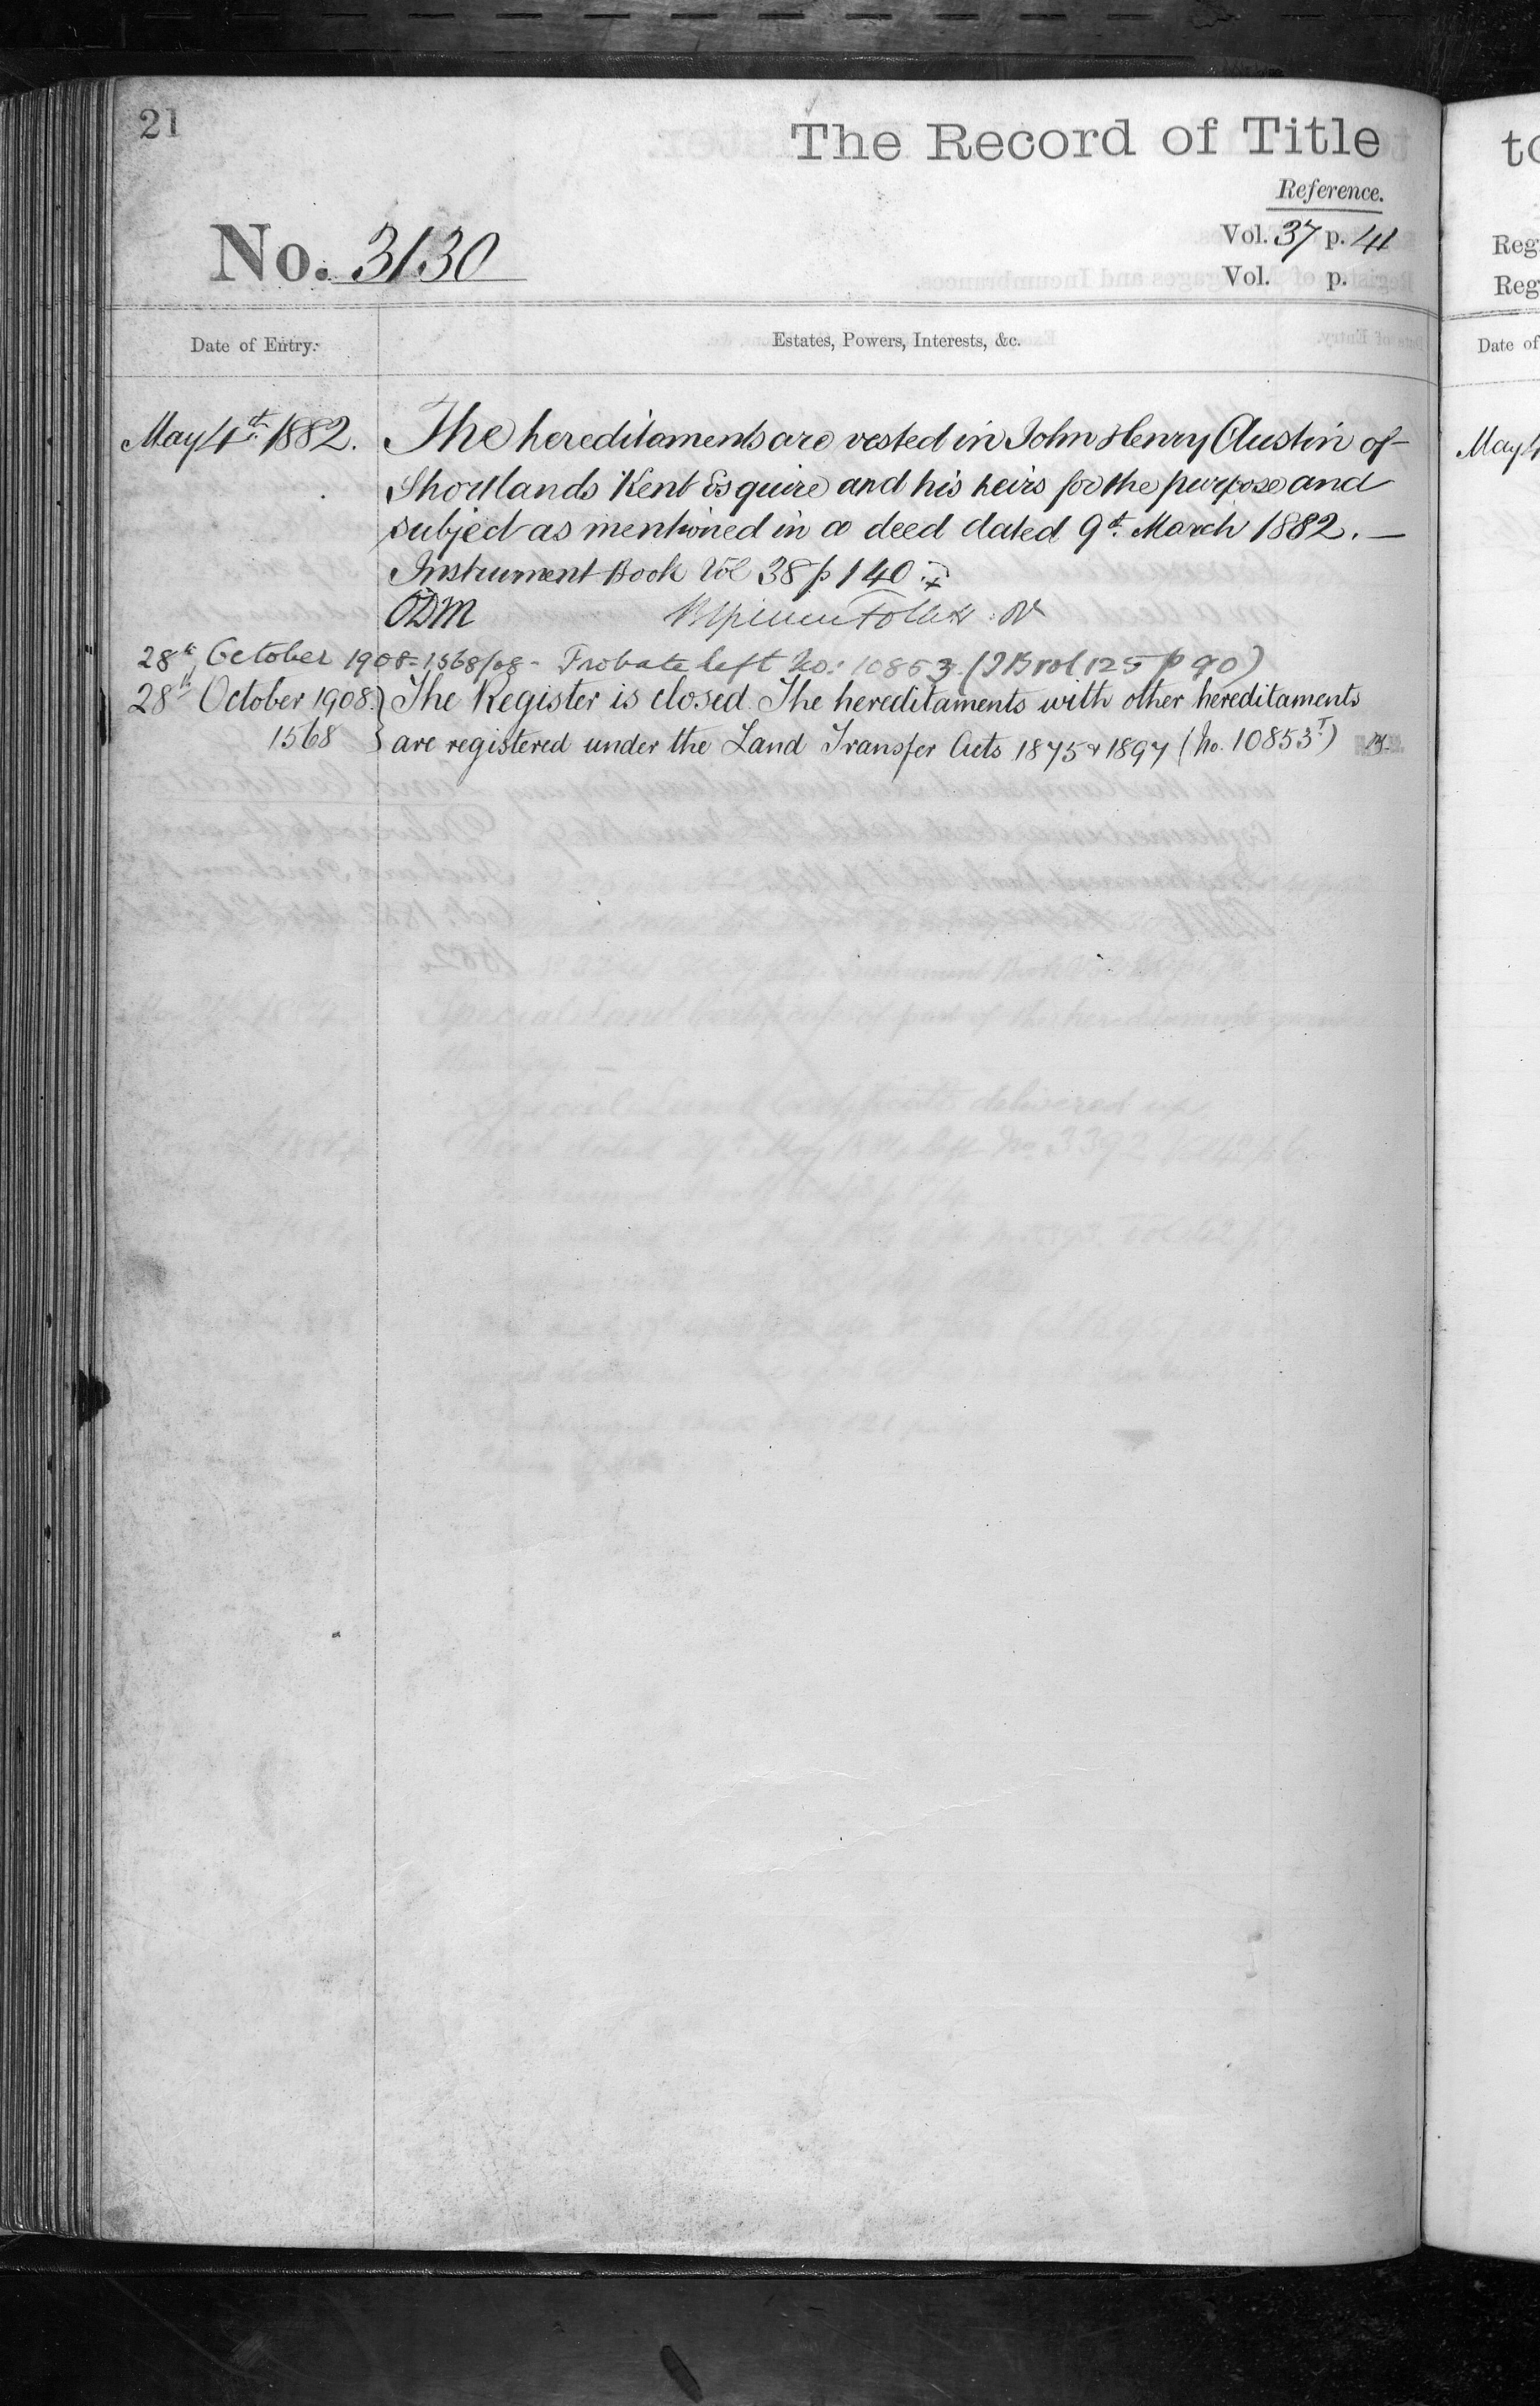 21
The Record of Title
Reference.
No. 3130
Vol. 37 p. 41
Vol. p.
Date of Entry.
Estates, Powers, Interests, &c.
May 4th 1882.
The hereditaments are vested in John Henry Austin of
Shortlands Kent Esquire and his heirs for the purpose and
subject as mentioned in a deed dated 9th March 1882. —
Instrument Book Vol 38 p 140
28th October 1908 - 1568/08 - Probate left No: 10853. (IB vol 125 p 90)
28th October 1908. } The Register is closed. The hereditaments with other hereditaments
1568 } are registered under the Land Transfer Acts 1875 & 1897 (No. 10853T)
to
Reg
Reg
Date of
May 4